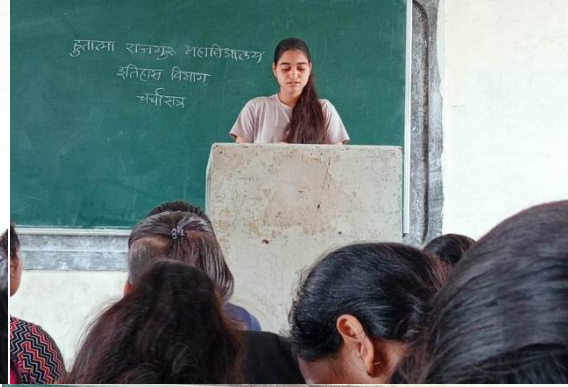 हुतात्मा राजगुरू महाविद्यालय
इतिहास विभाग
चर्चासत्र